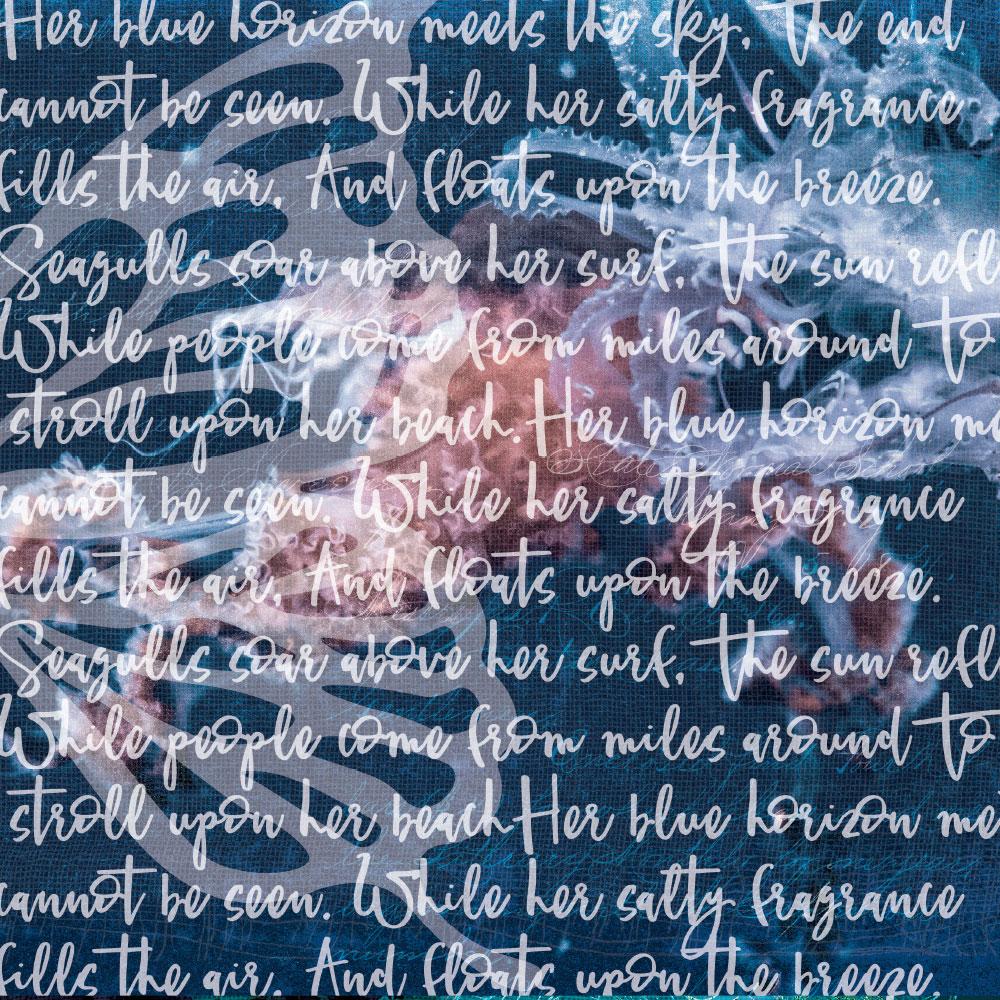 Her blue horizon meets the sky, The end
cannot be seen. While her salty fragrance
fills the air, And floats upon the breeze.
Seagulls soar above her surf, The sun refl
While people come from miles around To
stroll upon her beach.Her blue horizon me
cannot be seen. While her salty fragrance
fills the air, And floats upon the breeze.
Seagulls soar above her surf, The sun refl
While people come from miles around To
stroll upon her beachHer blue horizon me
cannot be seen. While her salty fragrance
fills the air, And floats upon the breeze.